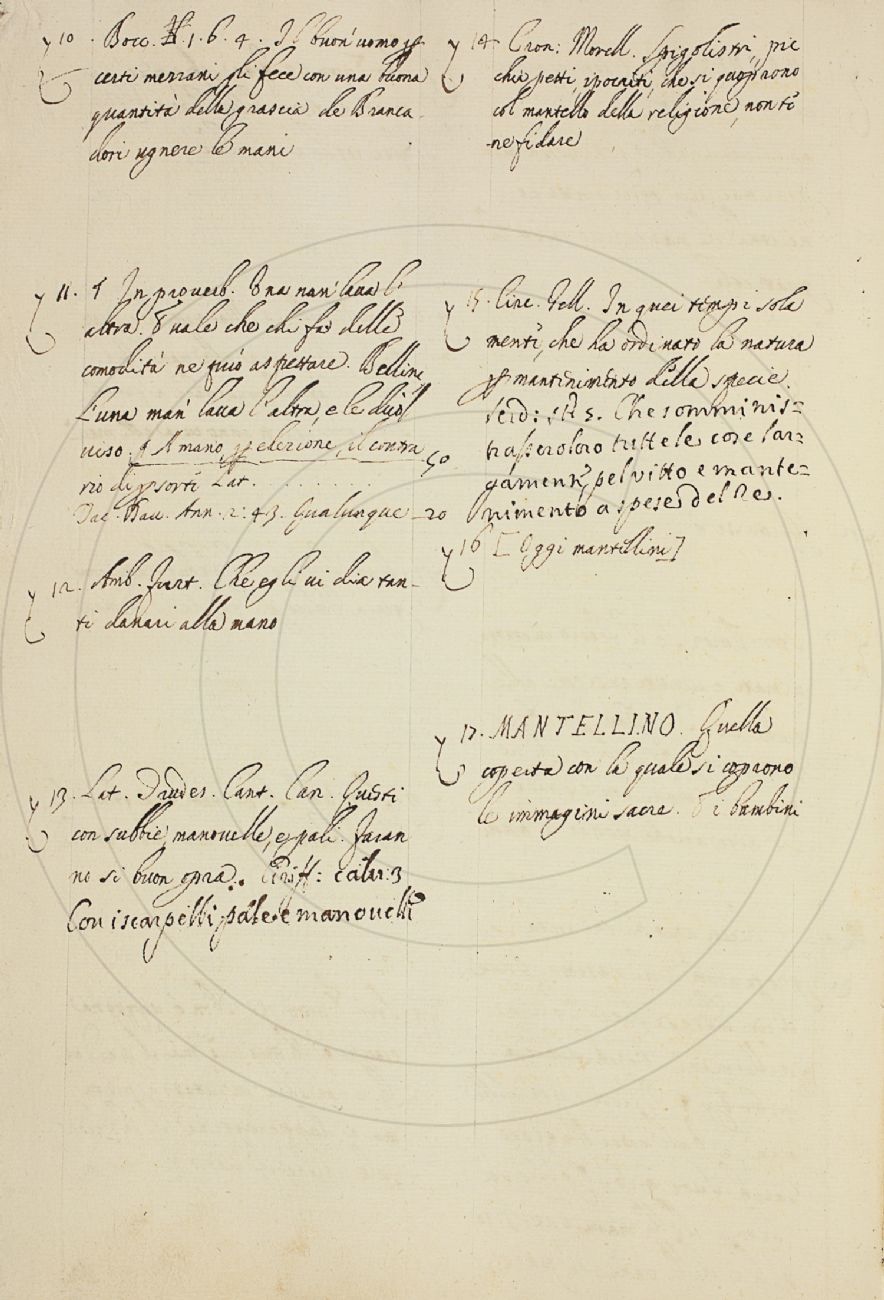 10. Bocc. N. 1. 6. 4. Il buon' uomo p
certi mezzani gli fece con una buona
quantità della grascia de Branca
dori ugnere le mani
11. ¶ In proverb. Una man' lava l'
altra. E vale che chi fà delle
comodità ne può aspettare. Bellin.
L'una man' lava l'altra, e le due 'l
viso. ¶ A mano p elezione, il contra
rio di p sorte Lat. . . . . . . . . 50
Tac. Dav. Ann. 2. 43. Qualunque 20
12. Amb. Furt. Che egli vi dia tan-
ti danari alla mano
13. Lat. Trudes. Cant. Carn. Questi
con subbie, manovelle, e pali. Faran
no sì buon opra. Ciriff: Calv: 3
Con iscarpelli, pale, e manovelle
14. Cron: Morell. Spigolistri, pic
chia petti, ipocriti, che si cuoprono
col mantello della religione, non ti
ne fidare
15. Circ. Gell. In quei tempi sola
mente, che ha ordinato la natura
p mantenimento della specie.
Serd: St 5. Che somminis=
trasse loro tutte le cose lar=
gamente pel vitto e mante=
nimento a spese del Re.
16 [Oggi mantellini]
17. MANTELLINO. Quella
coperta con la quale si coprono
le immagini sacre. E i bambini